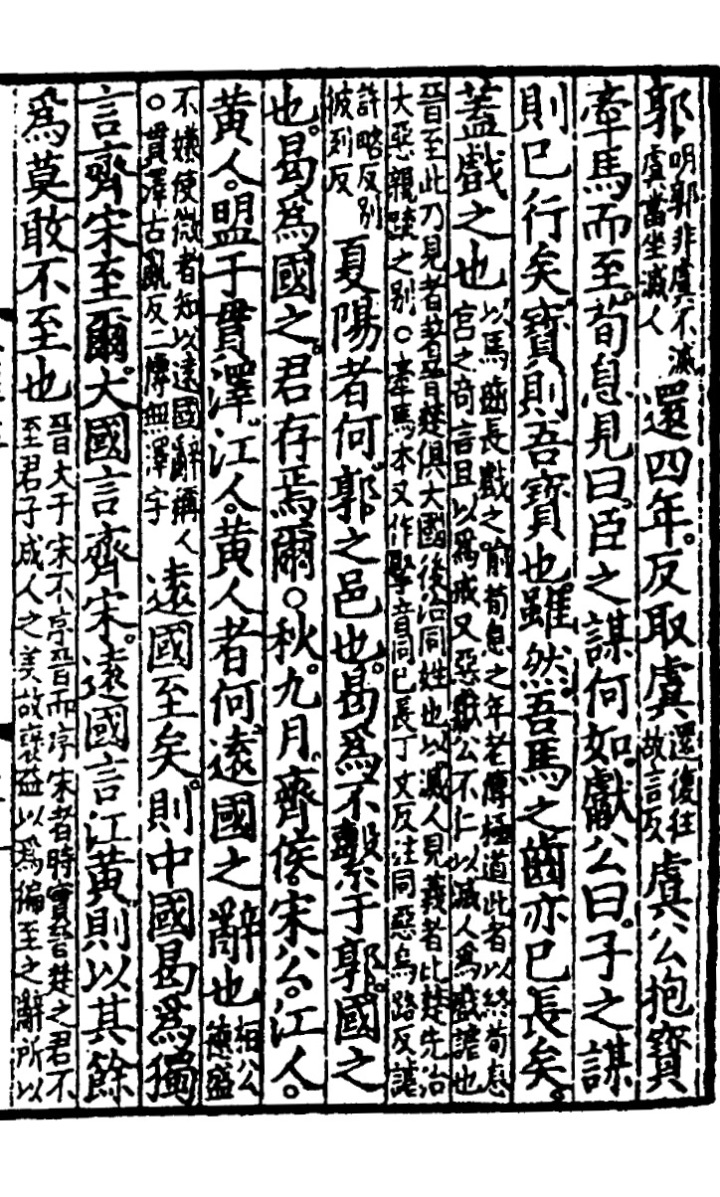 郭明郭非虞不滅虞當坐滅人還四年。反取虞還復往故言反虞公抱寶
牽馬而至。荀息見曰。臣之謀何如。獻公曰。子之謀
則已行矣。寶則吾寶也。雖然。吾馬之齒亦已長矣。
蓋戲之也以馬齒長戲之。喻荀息之年老傳極道此者以終荀息宮之奇言且以為戒又惡獻公不仁以滅人為戲謔也
晉至此乃見者著晉楚俱大國後治同姓也以滅人見義者比楚先治大惡親疏之別〇牽馬本又作掔音同已長丁丈反注同惡烏路反謔
許略反別彼列反夏陽者何。郭之邑也。曷為不繫于郭。國之
也。曷為國之。君存焉爾〇秋。九月。齊侯。宋公。江人。
黃人。盟于貫澤。江人。黃人者何。遠國之辭也桓公德盛
不嫌使微者知以遠國辭稱人〇貫澤古亂反二傳無澤字遠國至矣。則中國曷為獨
言齊宋至爾。大國言齊宋。遠國言江黃。則以其餘
為莫敢不至也晉大于宋不序晉而序宋者時實晉楚之君不至君子成人之美故褒益以為徧至之辭所以